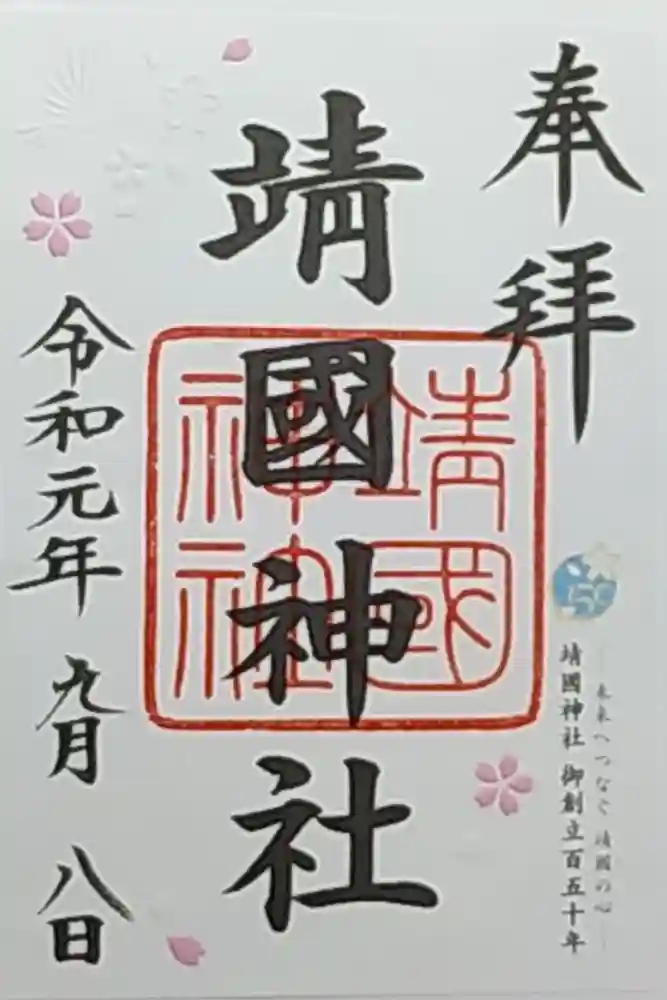 奉拝
150
―未来へつなぐ 靖國の心―
靖國神社 御創立百五十年
靖國神社
靖國
神社
令和元年 九月 八日